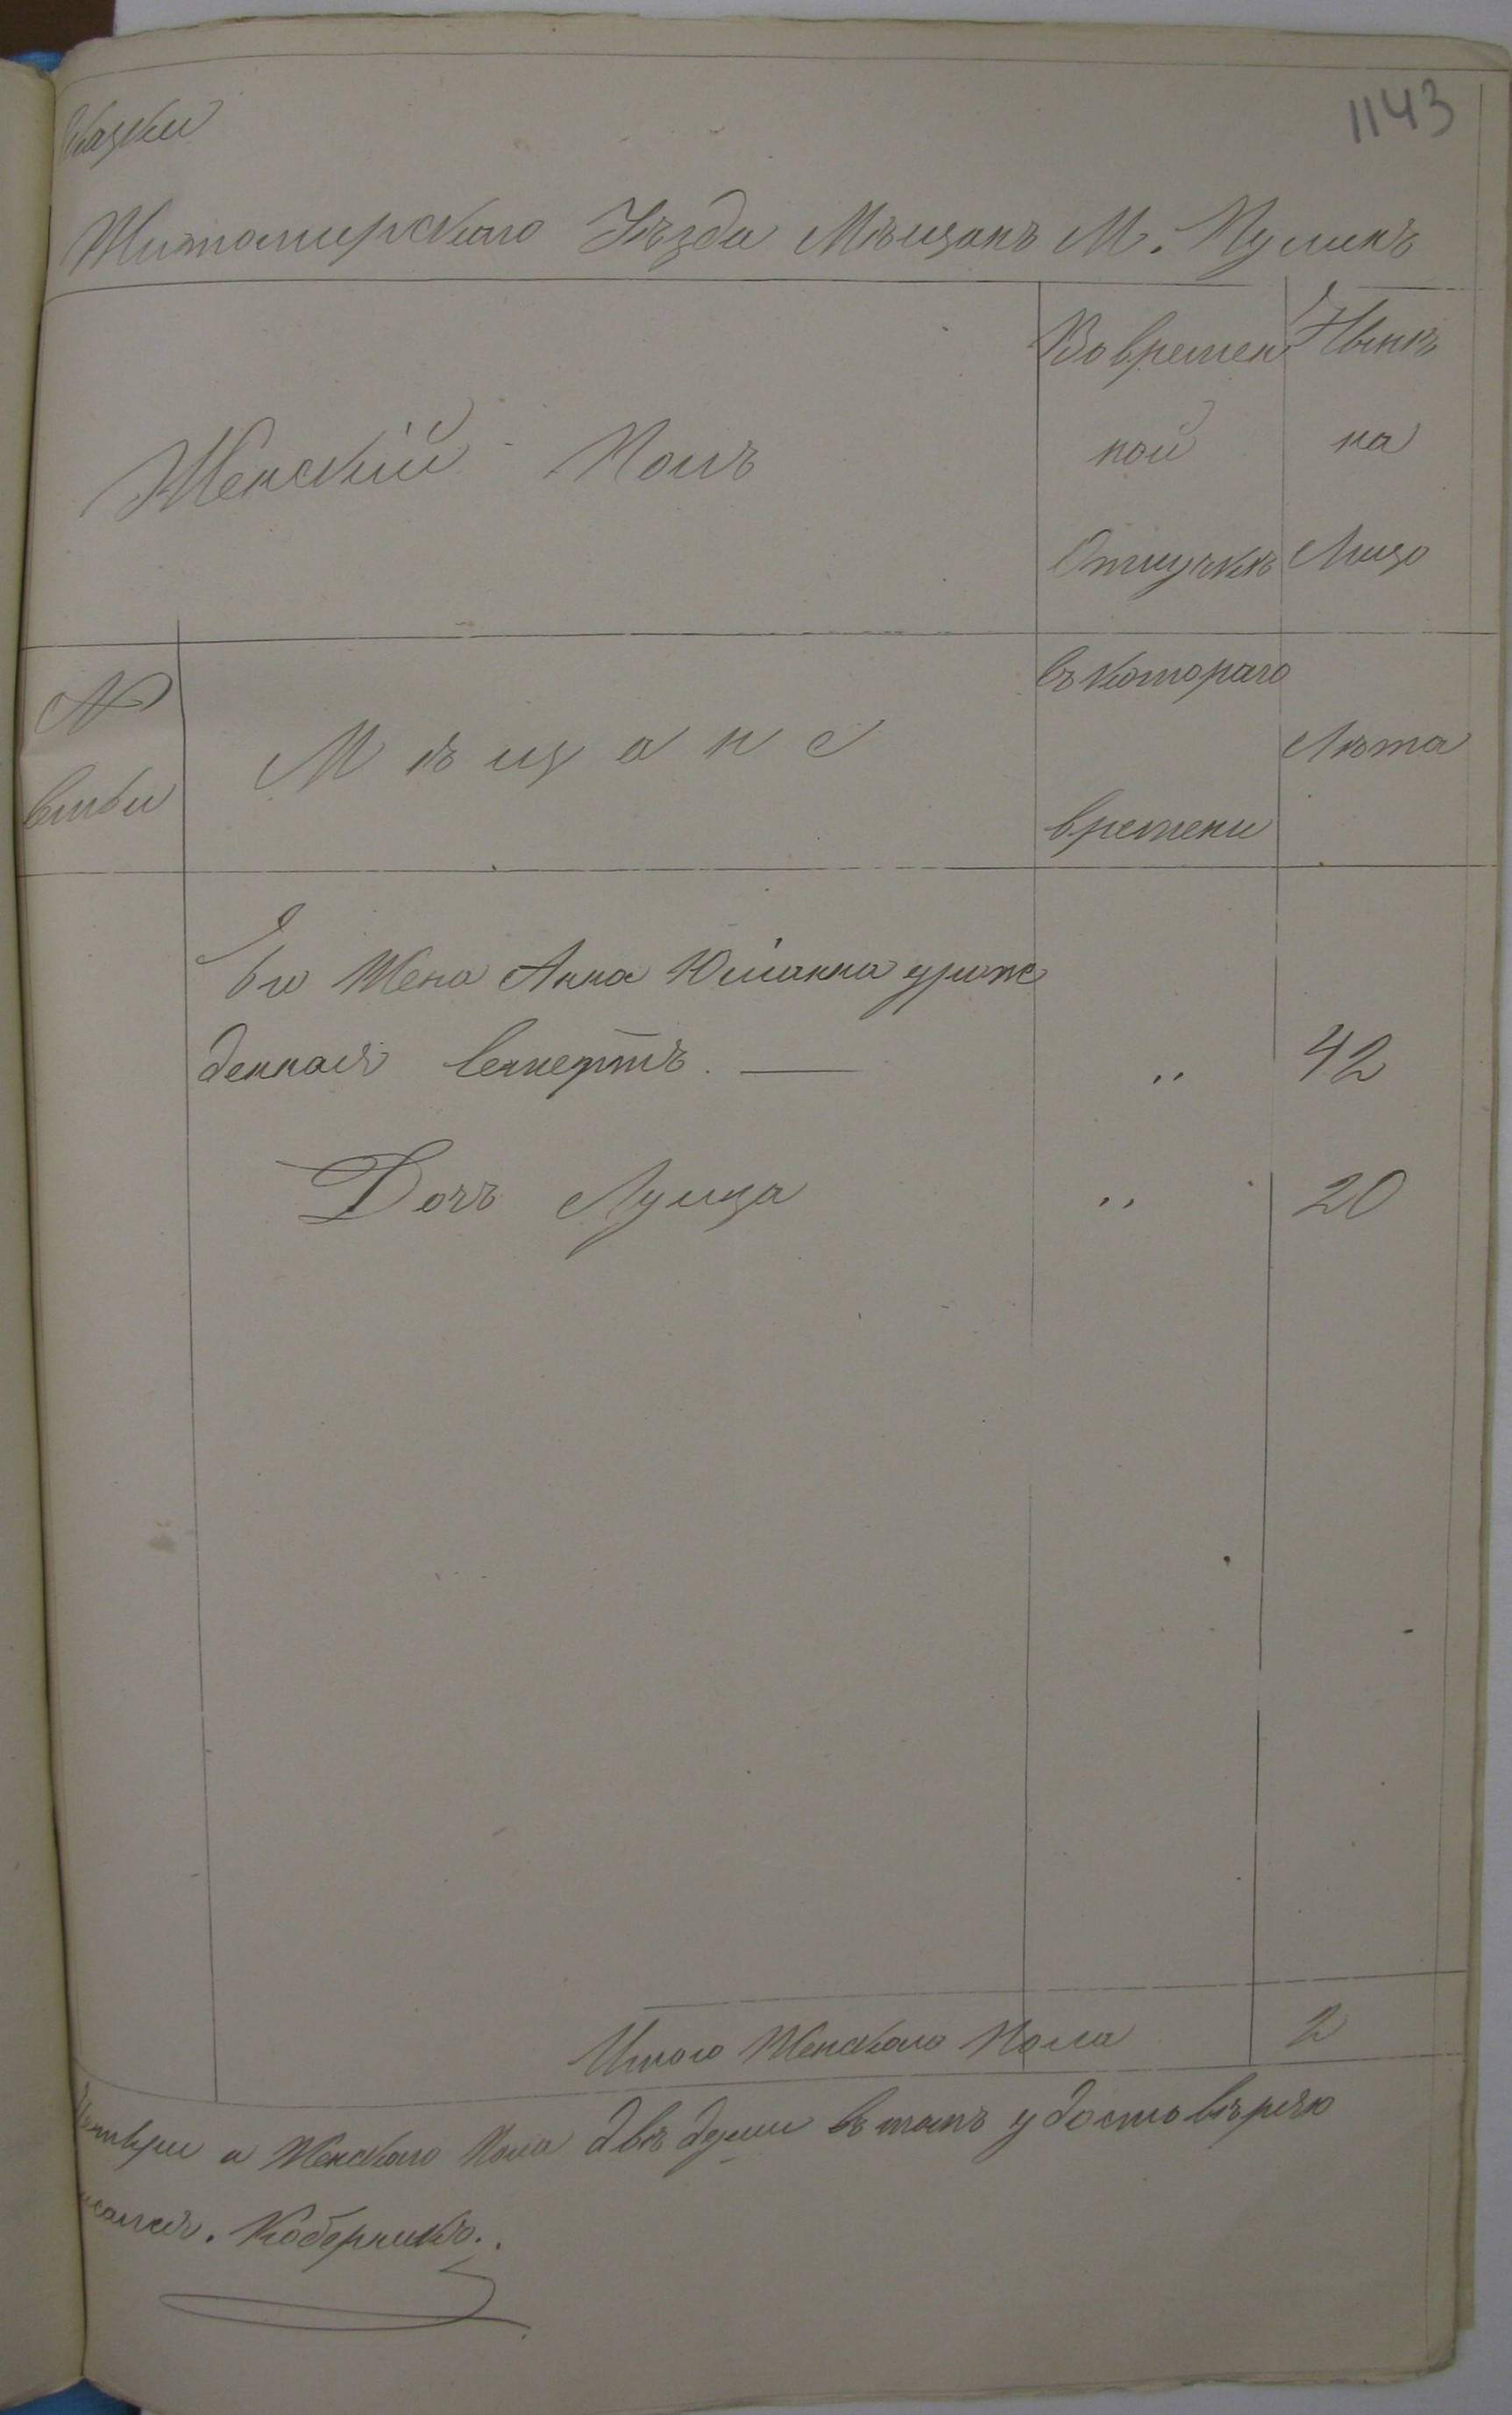 1143
сказки
Житомирскаго Уѣзда Мѣщанъ М. Пулинъ
Женскій Полъ
Во времен
ной
Отлучкѣ
Нынѣ
на
Лицо
№
Мѣщане
съ котораго
времени
Лѣта
Его Жена Анна Юлианна урож
денная 42
Дочь Луиза 20
Итого Женскаго Пола 2
а Женскаго Пола двѣ души въ томъ удостовѣряю
Коберникъ.